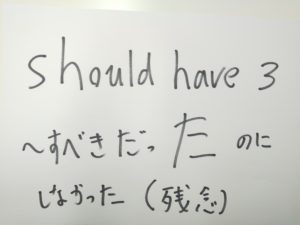 should have 3
～すべきだった のに
しなかった (残念)